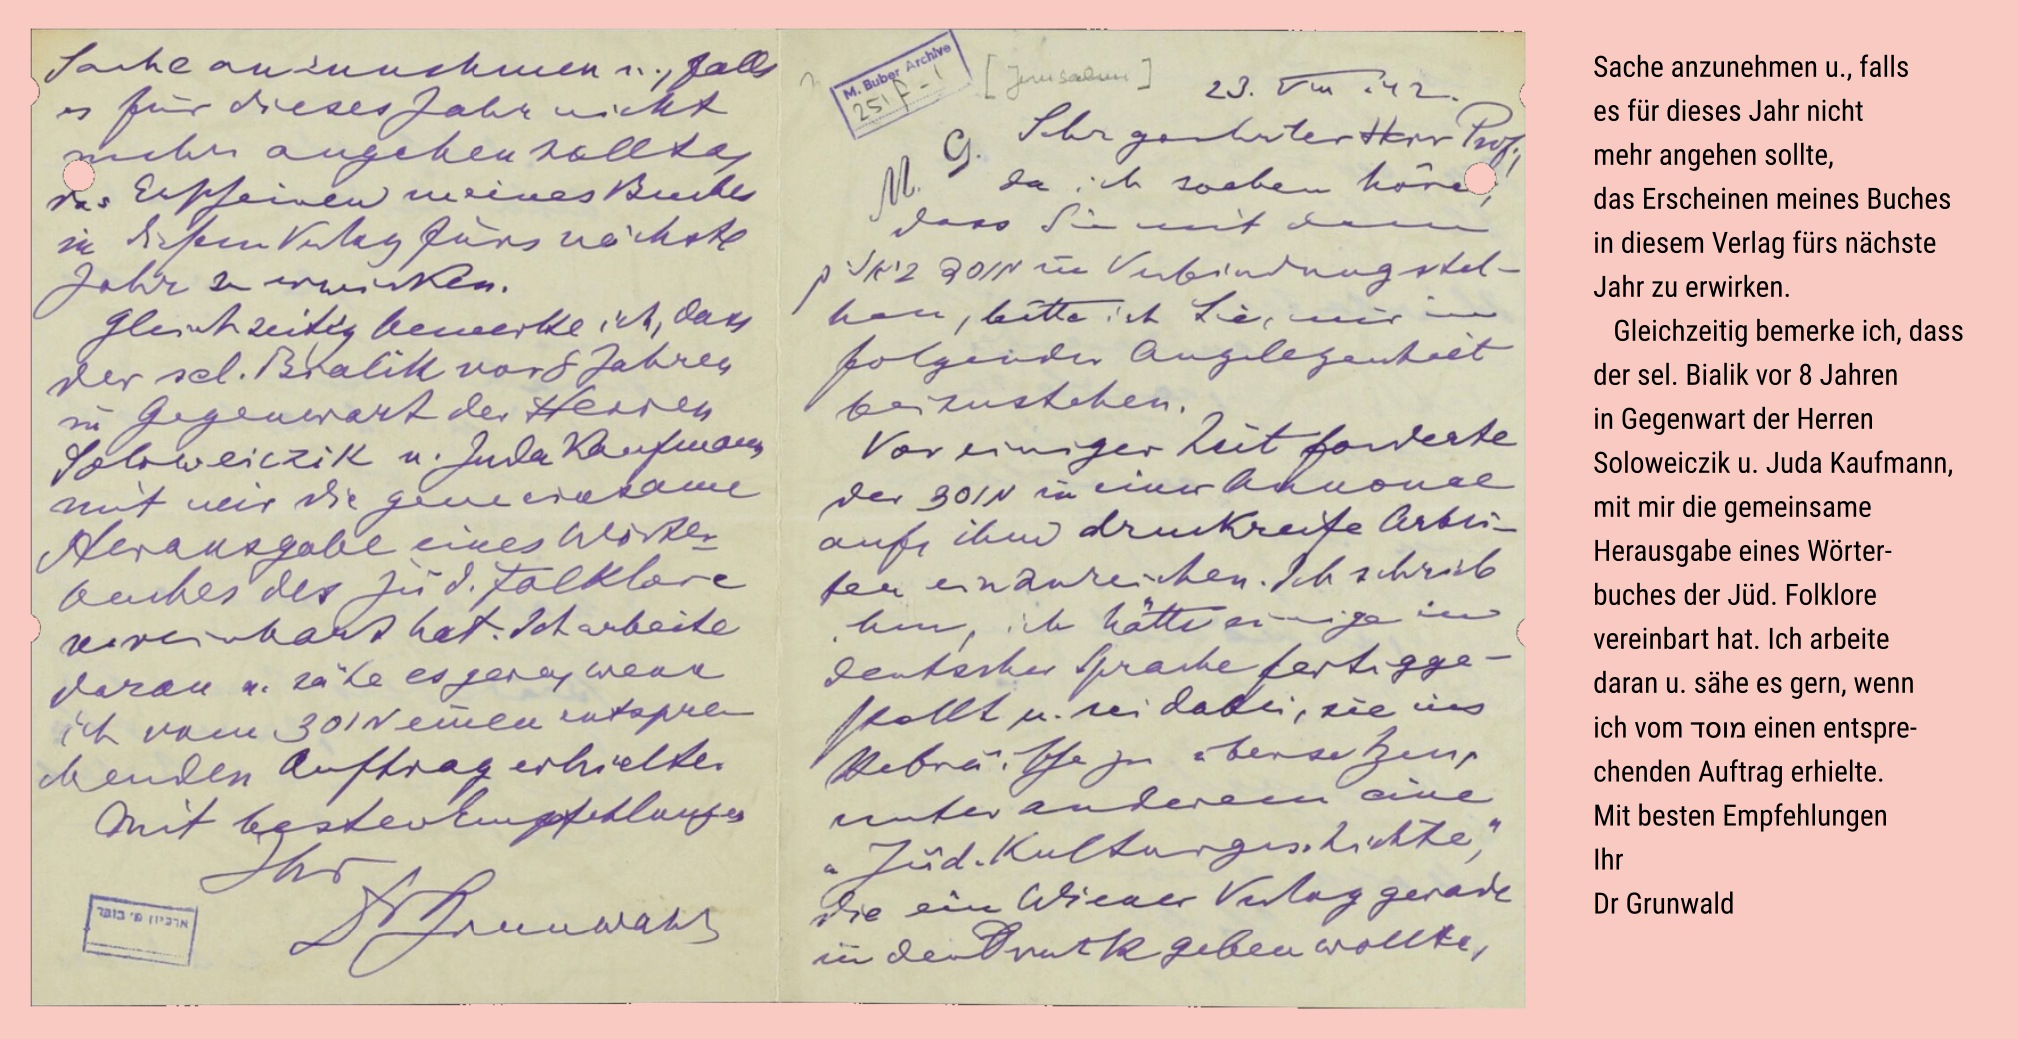 Sache anzunehmen u., falls
es für dieses Jahr nicht
mehr angehen sollte,
das Erscheinen meines Buches
in diesem Verlag fürs nächste
Jahr zu erwirken.
Gleichzeitig bemerke ich, dass
der sel. Bialik vor 8 Jahren
in Gegenwart der Herren
Soloweiczik u. Juda Kaufmann,
mit mir die gemeinsame
Herausgabe eines Wörter-
buches des Jüd. Folklore
vereinbart hat. Ich arbeite
daran u. sähe es gern, wenn
ich vom מוסד einen entspre-
chenden Auftrag erhielte.
Mit besten Empfehlungen
Ihr
Dr Grunwald
ארכיון מ' בובר
M. Buber Archive
251 f-1
[Jerusalem]
23. VIII .42.
M. G.
Sehr geehrter Herr Prof.!
da ich soeben höre,
dass Sie mit dem
מוסד ביאליק in Verbindung ste-
hen, bitte ich Sie, mir in
folgender Angelegenheit
beizustehen.
Vor einiger Zeit forderte
der מוסד in einer Annonce
auf, ihm druckreife Arbei-
ten einzureichen. Ich schrieb
ihm, ich hätte einige in
deutscher Sprache fertigge-
stellt u. sei dabei, sie ins
Hebräische zu übersetzen,
unter anderem eine
„Jüd. Kulturgeschichte",
die ein Wiener Verlag gerade
in den Druck geben wollte,
Sache anzunehmen u., falls
es für dieses Jahr nicht
mehr angehen sollte,
das Erscheinen meines Buches
in diesem Verlag fürs nächste
Jahr zu erwirken.
Gleichzeitig bemerke ich, dass
der sel. Bialik vor 8 Jahren
in Gegenwart der Herren
Soloweiczik u. Juda Kaufmann,
mit mir die gemeinsame
Herausgabe eines Wörter-
buches der Jüd. Folklore
vereinbart hat. Ich arbeite
daran u. sähe es gern, wenn
ich vom מוסד einen entspre-
chenden Auftrag erhielte.
Mit besten Empfehlungen
Ihr
Dr Grunwald